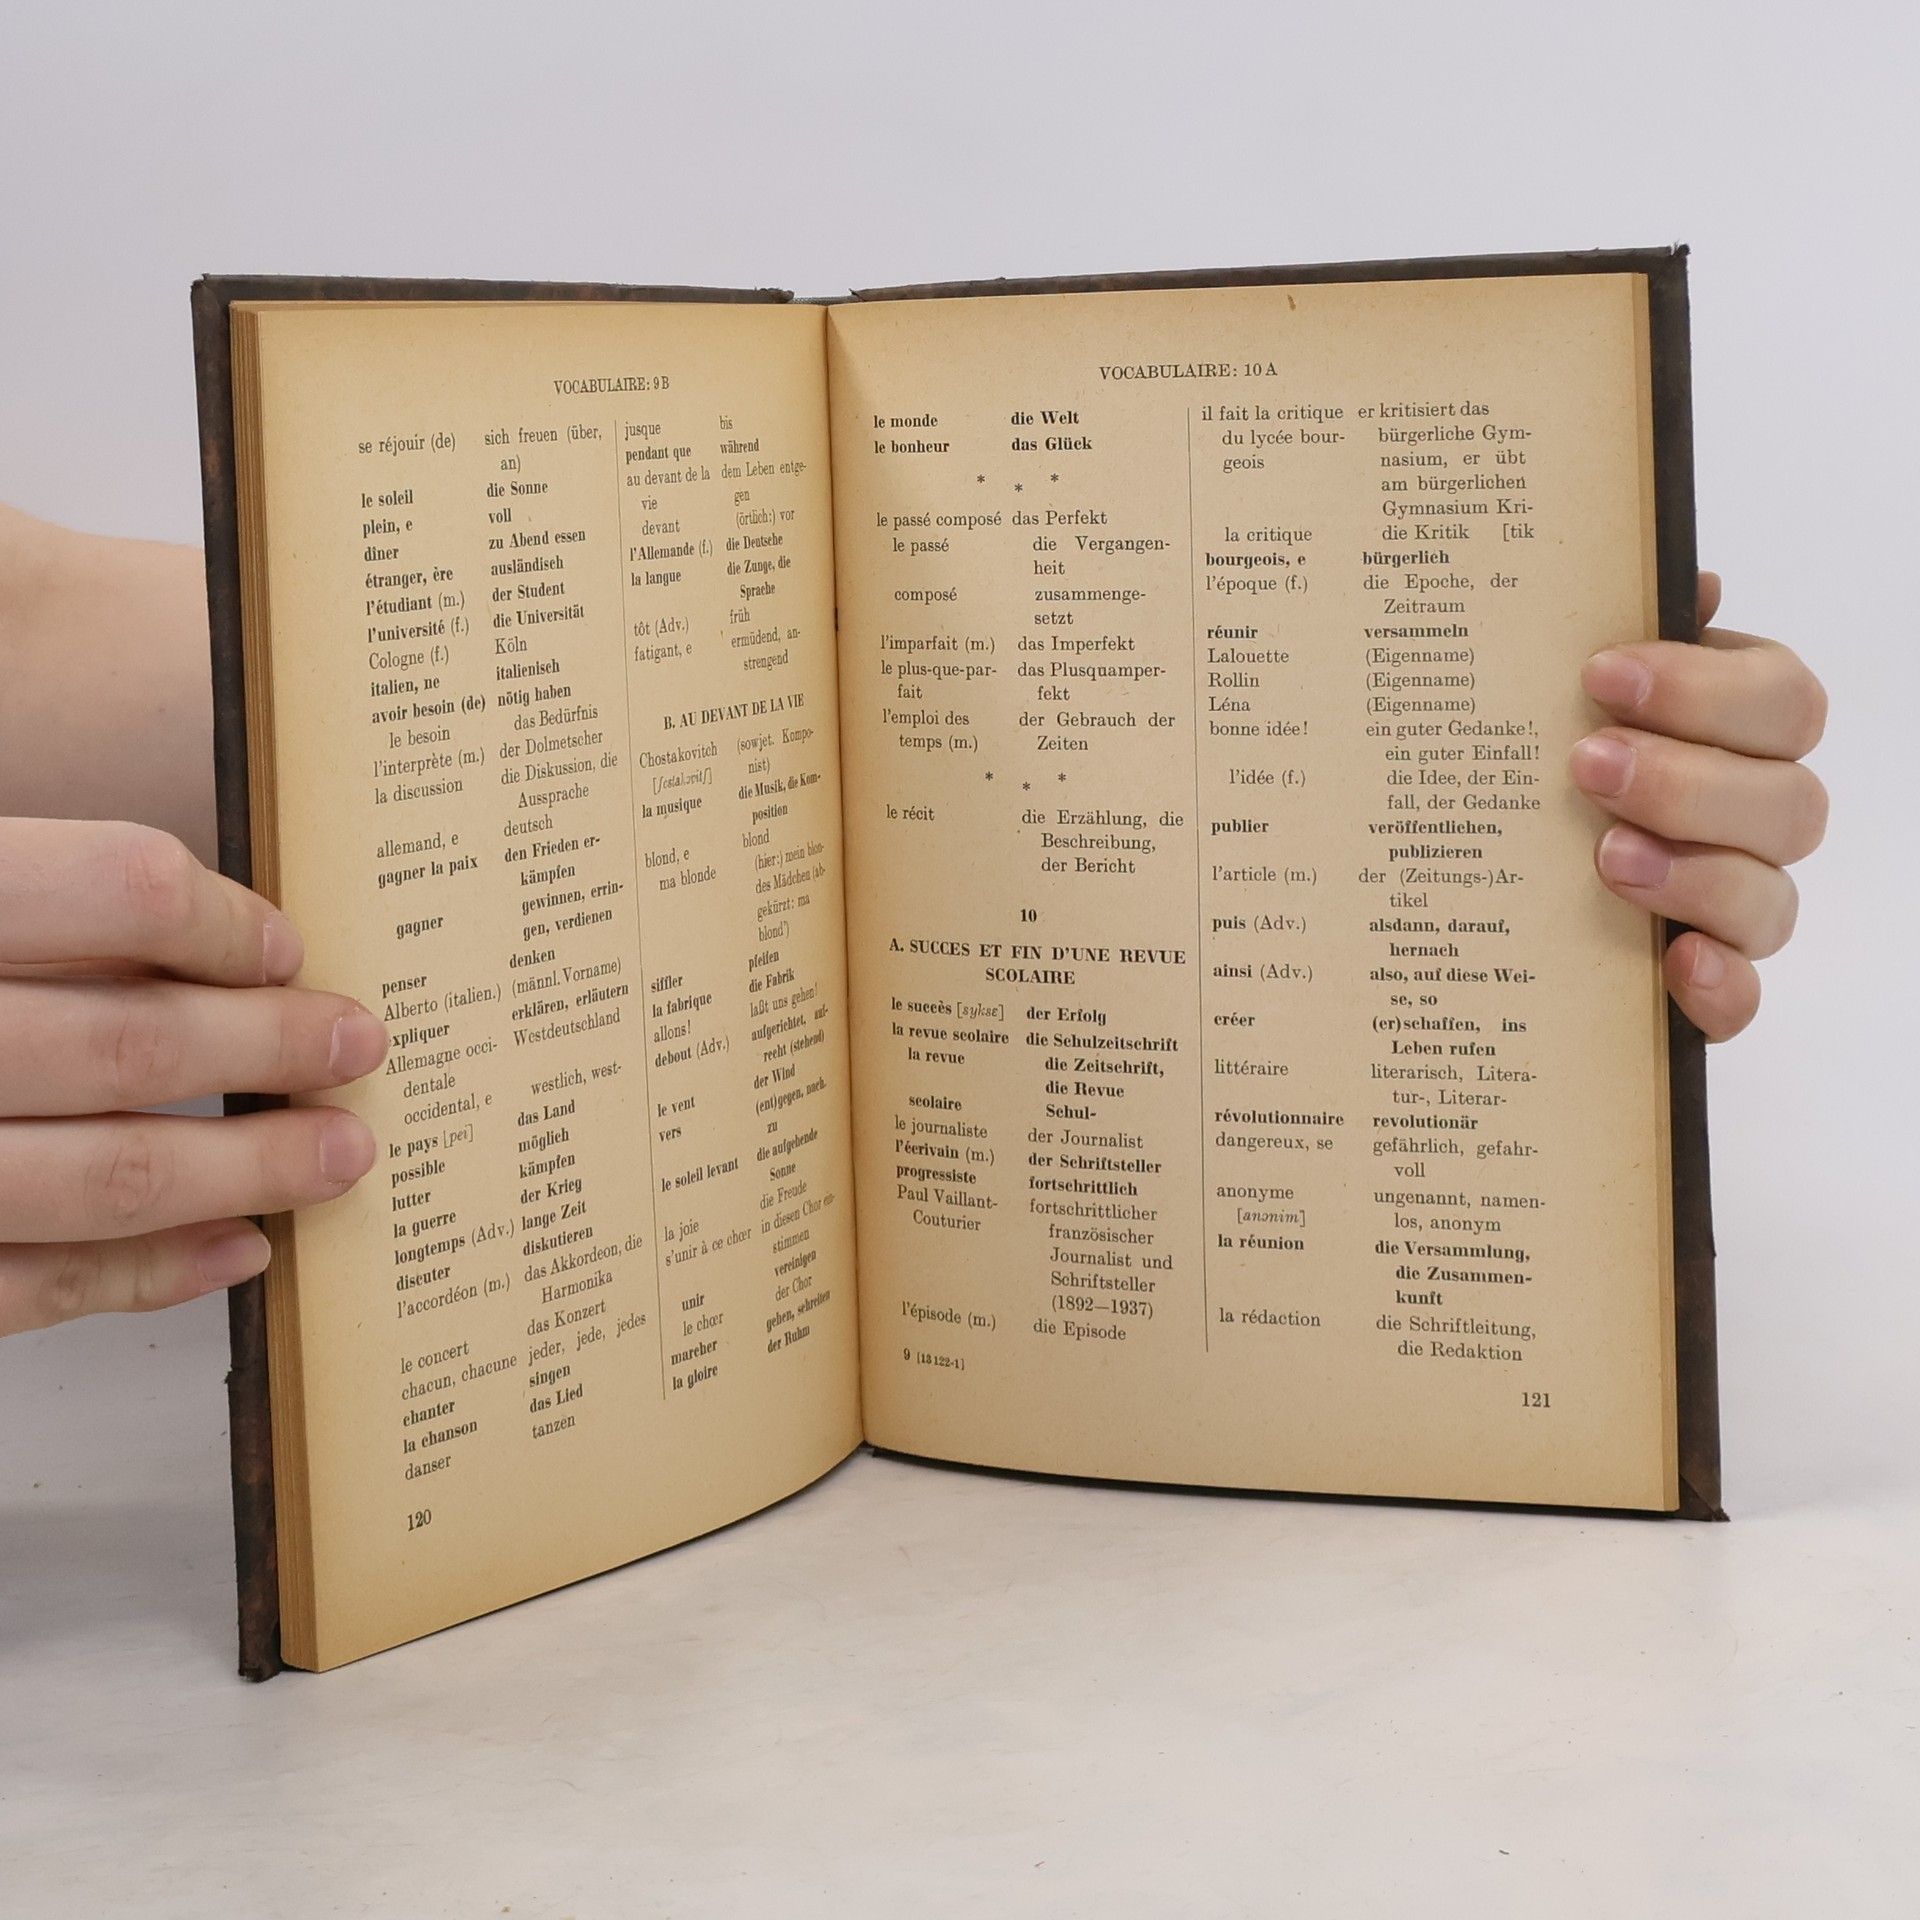 VOCABULAIRE: 9 B
se réjouir (de) sich freuen (über,
an)
le soleil die Sonne
plein, e voll
dîner zu Abend essen
étranger, ère ausländisch
l'étudiant (m.) der Student
l'université (f.) die Universität
Cologne (f.) Köln
italien, ne italienisch
avoir besoin (de) nötig haben
le besoin das Bedürfnis
l'interprète (m.) der Dolmetscher
la discussion die Diskussion, die
Aussprache
allemand, e deutsch
gagner la paix den Frieden er-
kämpfen
gagner gewinnen, errin-
gen, verdienen
penser denken
Alberto (italien.) (männl. Vorname)
xpliquer erklären, erläutern
Allemagne occi- Westdeutschland
dentale
occidental, e westlich, west-
le pays [pei] das Land
possible möglich
lutter kämpfen
la guerre der Krieg
longtemps (Adv.) lange Zeit
discuter diskutieren
l'accordéon (m.) das Akkordeon, die
Harmonika
le concert das Konzert
chacun, chacune jeder, jede, jedes
chanter singen
la chanson das Lied
danser tanzen
120
jusque bis
pendant que während
au devant de la dem Leben entge-
vie gen
devant (örtlich:) vor
l'Allemande (f.) die Deutsche
la langue die Zunge, die
Sprache
tôt (Adv.) früh
fatigant, e ermüdend, an-
strengend
B. AU DEVANT DE LA VIE
Chostakovitch (sowjet. Kompo-
[ʃɔstakɔvitʃ] nist)
la musique die Musik, die Kom-
position
blond, e blond
ma blonde (hier:) mein blon-
des Mädchen (ab-
gekürzt: ma
blond')
siffler pfeifen
la fabrique die Fabrik
allons! laßt uns gehen!
debout (Adv.) aufgerichtet, auf-
recht (stehend)
le vent der Wind
vers (ent)gegen, nach,
zu
le soleil levant die aufgehende
Sonne
la joie die Freude
s'unir à ce chœur in diesen Chor ein-
stimmen
unir vereinigen
le chœur der Chor
marcher gehen, schreiten
la gloire der Ruhm
VOCABULAIRE: 10 A
le monde die Welt
le bonheur das Glück
* * *
le passé composé das Perfekt
le passé die Vergangen-
heit
composé zusammenge-
setzt
l'imparfait (m.) das Imperfekt
le plus-que-par- das Plusquamper-
fait fekt
l'emploi des der Gebrauch der
temps (m.) Zeiten
* * *
le récit die Erzählung, die
Beschreibung,
der Bericht
10
A. SUCCES ET FIN D'UNE REVUE
SCOLAIRE
le succès [syksɛ] der Erfolg
la revue scolaire die Schulzeitschrift
la revue die Zeitschrift,
die Revue
scolaire Schul-
le journaliste der Journalist
l'écrivain (m.) der Schriftsteller
progressiste fortschrittlich
Paul Vaillant- fortschrittlicher
Couturier französischer
Journalist und
Schriftsteller
(1892—1937)
l'épisode (m.) die Episode
9 [13 122-1]
il fait la critique er kritisiert das
du lycée bour- bürgerliche Gym-
geois nasium, er übt
am bürgerlichen
Gymnasium Kri-
la critique die Kritik [tik
bourgeois, e bürgerlich
l'époque (f.) die Epoche, der
Zeitraum
réunir versammeln
Lalouette (Eigenname)
Rollin (Eigenname)
Léna (Eigenname)
bonne idée! ein guter Gedanke!,
ein guter Einfall!
l'idée (f.) die Idee, der Ein-
fall, der Gedanke
publier veröffentlichen,
publizieren
l'article (m.) der (Zeitungs-)Ar-
tikel
puis (Adv.) alsdann, darauf,
hernach
ainsi (Adv.) also, auf diese Wei-
se, so
créer (er)schaffen, ins
Leben rufen
littéraire literarisch, Litera-
tur-, Literar-
révolutionnaire revolutionär
dangereux, se gefährlich, gefahr-
voll
anonyme ungenannt, namen-
[anɔnim] los, anonym
la réunion die Versammlung,
die Zusammen-
kunft
la rédaction die Schriftleitung,
die Redaktion
121